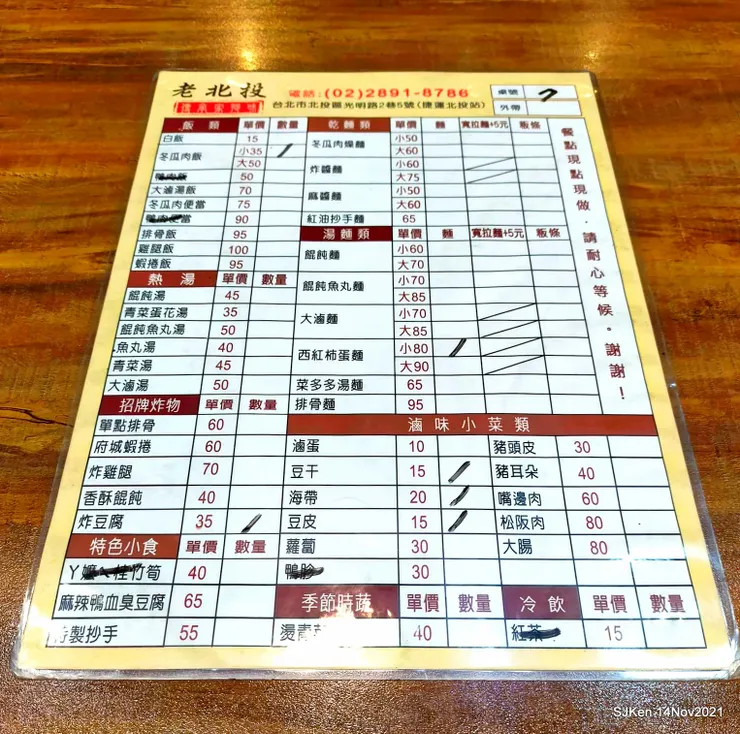 老北投
電話:(02)2891-8786
台北市北投區光明路2巷5號(捷運北投站)
桌號 7
外帶
飯類 單價 數量
白飯 15
冬瓜肉飯 小35
大50
鴨肉飯 50
大滷湯飯 70
冬瓜肉便當 75
鴨肉便當 90
排骨飯 95
雞腿飯 100
蝦捲飯 95
熱湯 單價 數量
餛飩湯 45
青菜蛋花湯 35
餛飩魚丸湯 50
魚丸湯 40
青菜湯 45
大滷湯 50
招牌炸物 單價 數量
單點排骨 60
府城蝦捲 60
炸雞腿 70
香酥餛飩 40
炸豆腐 35
特色小食 單價 數量
ㄚ嬤 桂竹筍 40
麻辣鴨血臭豆腐 65
特製抄手 55
乾麵類 單價 麵 寬拉麵+5元 粄條
冬瓜肉燥麵 小50
大60
炸醬麵 小60
大75
麻醬麵 小50
大60
紅油抄手麵 65
湯麵類 單價 麵 寬拉麵+5元 粄條
餛飩麵 小60
大70
餛飩魚丸麵 小70
大85
大滷麵 小70
大85
西紅柿蛋麵 小80
大90
菜多多湯麵 65
排骨麵 95
餐點現點現做,請耐心等候。謝謝!
滷味小菜類
滷蛋 10 豬頭皮 30
豆干 15 豬耳朵 40
海帶 20 嘴邊肉 60
豆皮 15 松阪肉 80
蘿蔔 30 大腸 80
鴨胗 30
季節時蔬 單價 數量 冷飲 單價 數量
燙青菜 40 紅茶 15
SJKen 14Nov2021